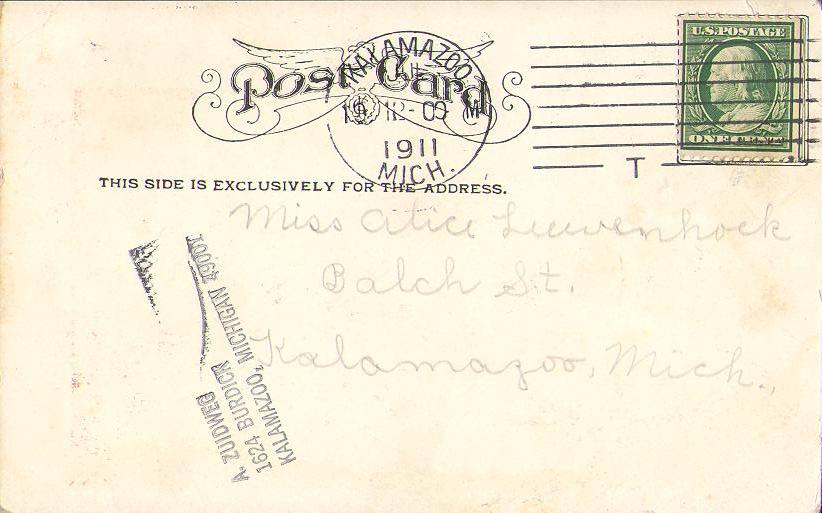 Post Card
KALAMAZOO
12-00 M
1911
MICH.
U.S. POSTAGE
ONE CENT
T
THIS SIDE IS EXCLUSIVELY FOR THE ADDRESS.
Miss Alice Leeuwenhoek
Balch St.
Kalamazoo, Mich.,
A. ZUIDWEG
1624 BURDICK
KALAMAZOO, MICHIGAN 49001